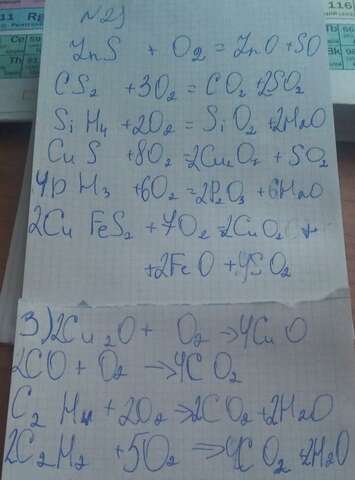 №2)
ZnS + O₂ = ZnO + SO
CS₂ + 3O₂ = CO₂ + 2SO₂
SiH₄ + 2O₂ = SiO₂ + 2H₂O
CuS + 8O₂ = 2Cu₂O + SO₂
4PH₃ + 6O₂ = 2P₂O₃ + 6H₂O
2CuFeS₂ + 7O₂ = 2CuO₂ +
+ 2FeO + 4SO₂
3) 2Cu₂O + O₂ → 4CuO
2CO + O₂ → 4CO₂
C₂H₄ + 2O₂ → 2CO₂ + 2H₂O
2C₂H₂ + 5O₂ → 4CO₂ + 2H₂O